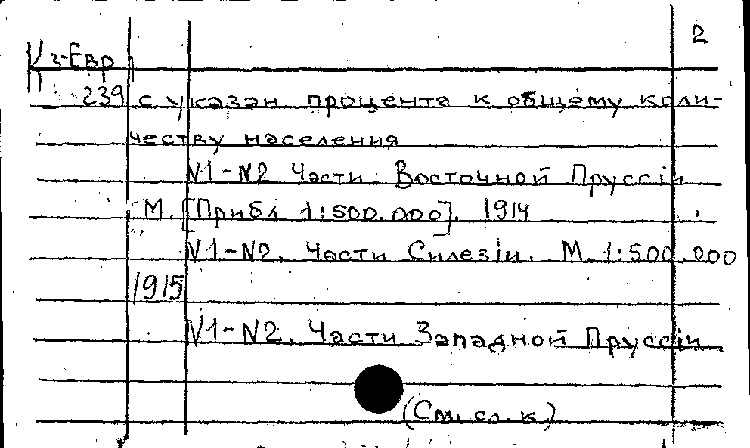 2
К 3-Евр
239 с указан процента к общему коли-
честву населения
N1-N2 Части Восточной Пруссіи
М. [Прибл 1:500.000]. 1914
N1-N2. Части Силезіи. М. 1:500.000
1915
N1-N2. Части Западной Пруссіи
(См. сл. к.)